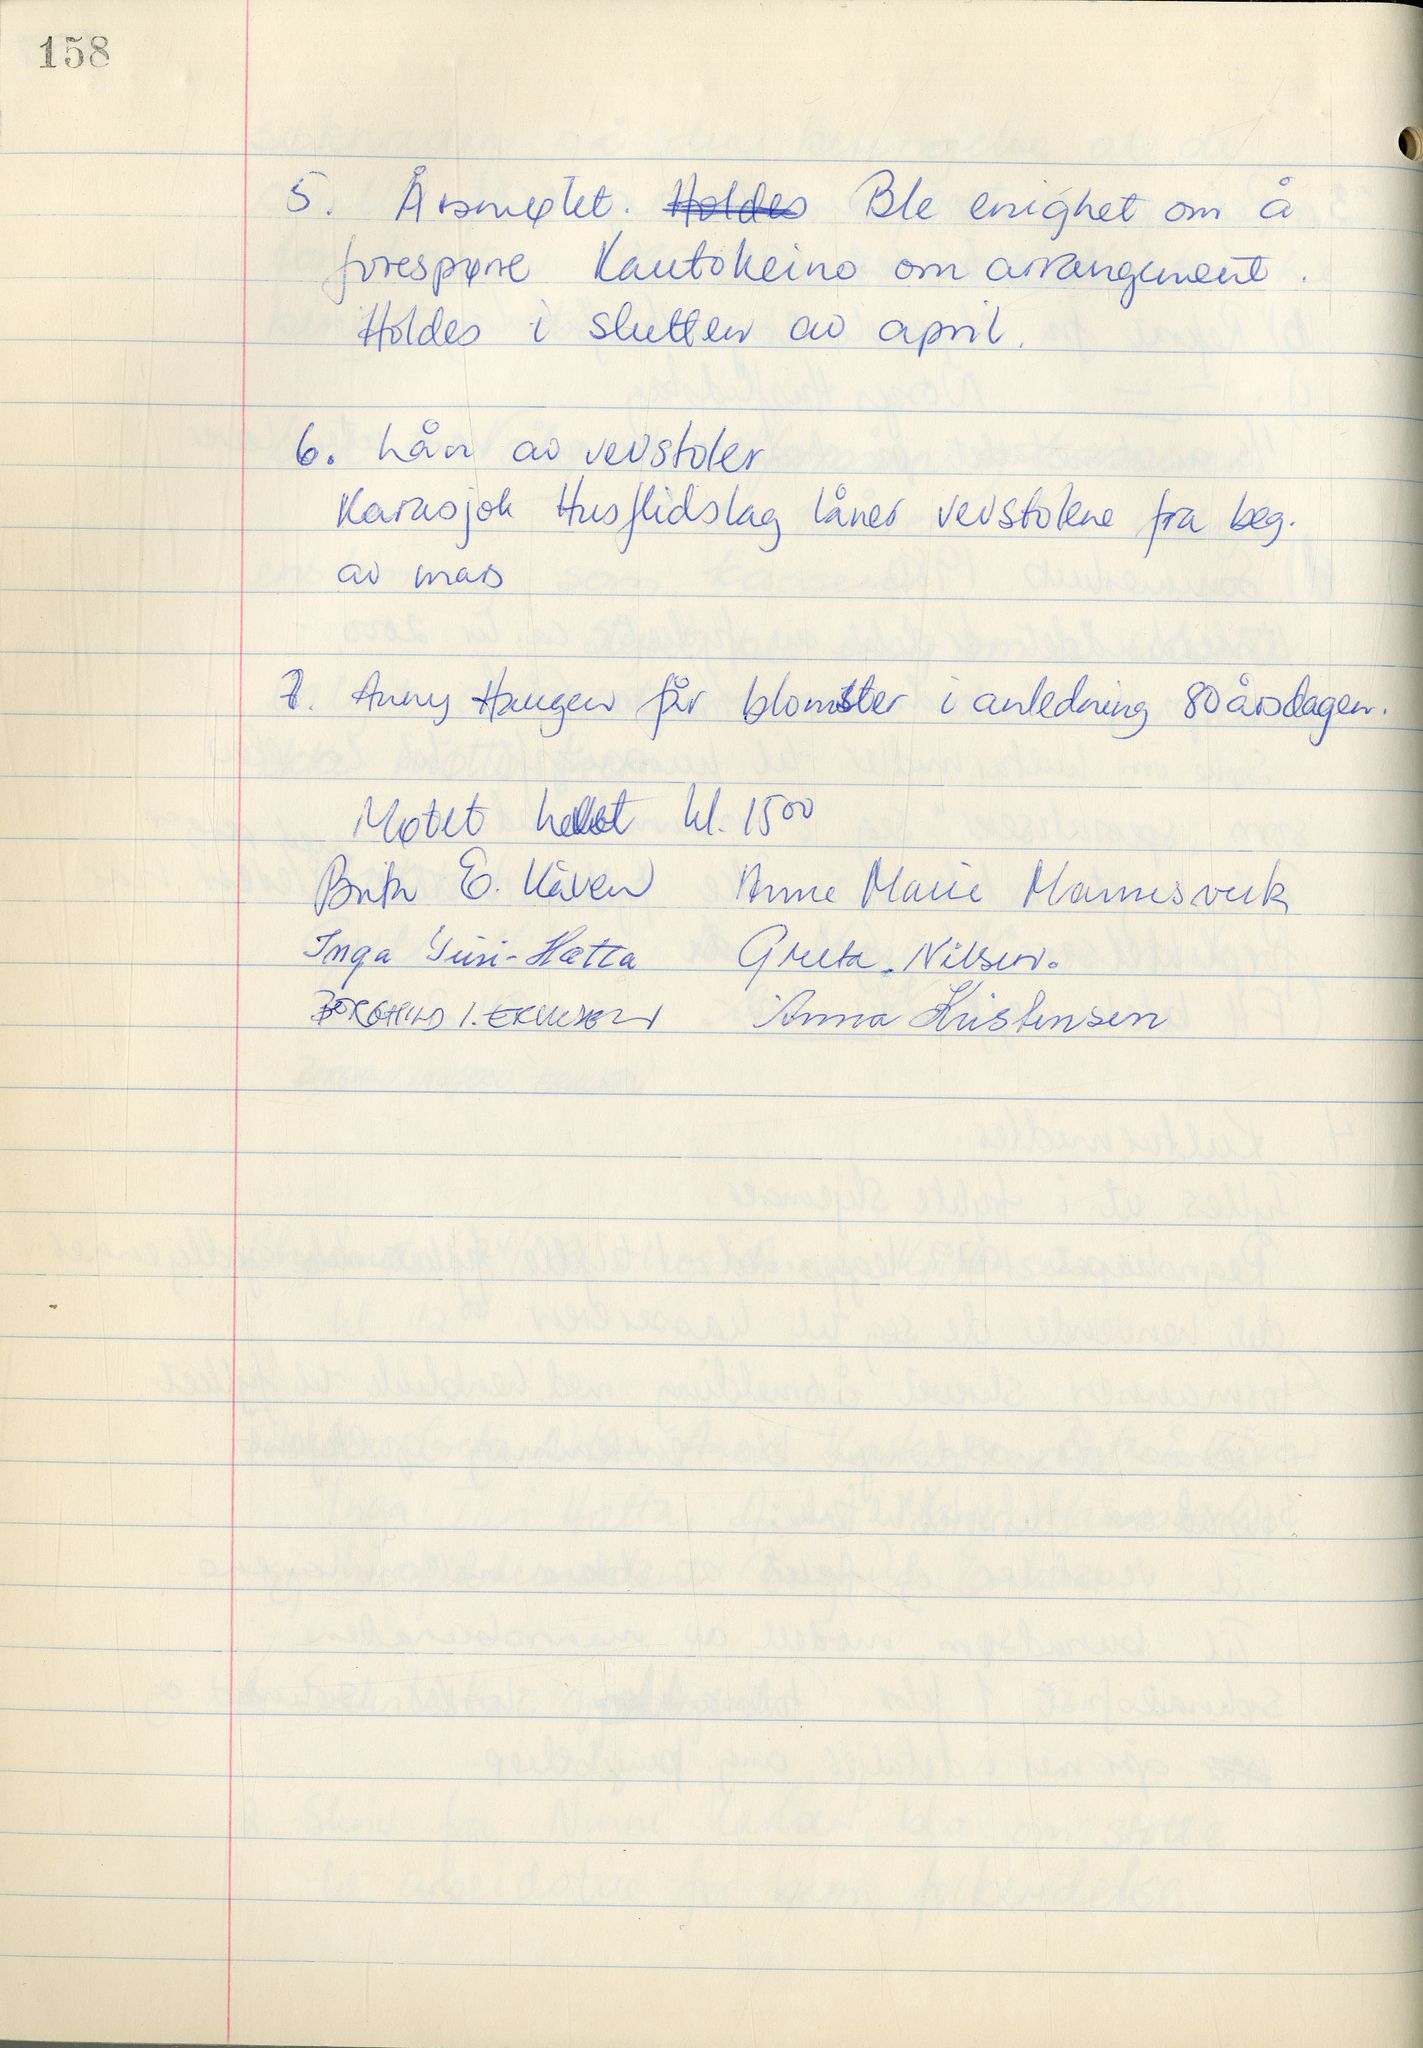 158
5. Årsmøtet. Holdes Ble enighet om å
forespørre Kautokeino om arrangement.
Holdes i slutten av april.
6. Lån av vevstoler
Karasjok Husflidslag låner vevstolene fra beg.
av mars
7. Anny Haugen får blomster i anledning 80 årsdagen.
Møtet hevet kl. 15⁰⁰
Brita E. Kåven Anne Marie Mannsverk
Inga Juuso-Hætta Greta Nilsen.
BORGHILD I. ERIKSEN Anna Kristensen